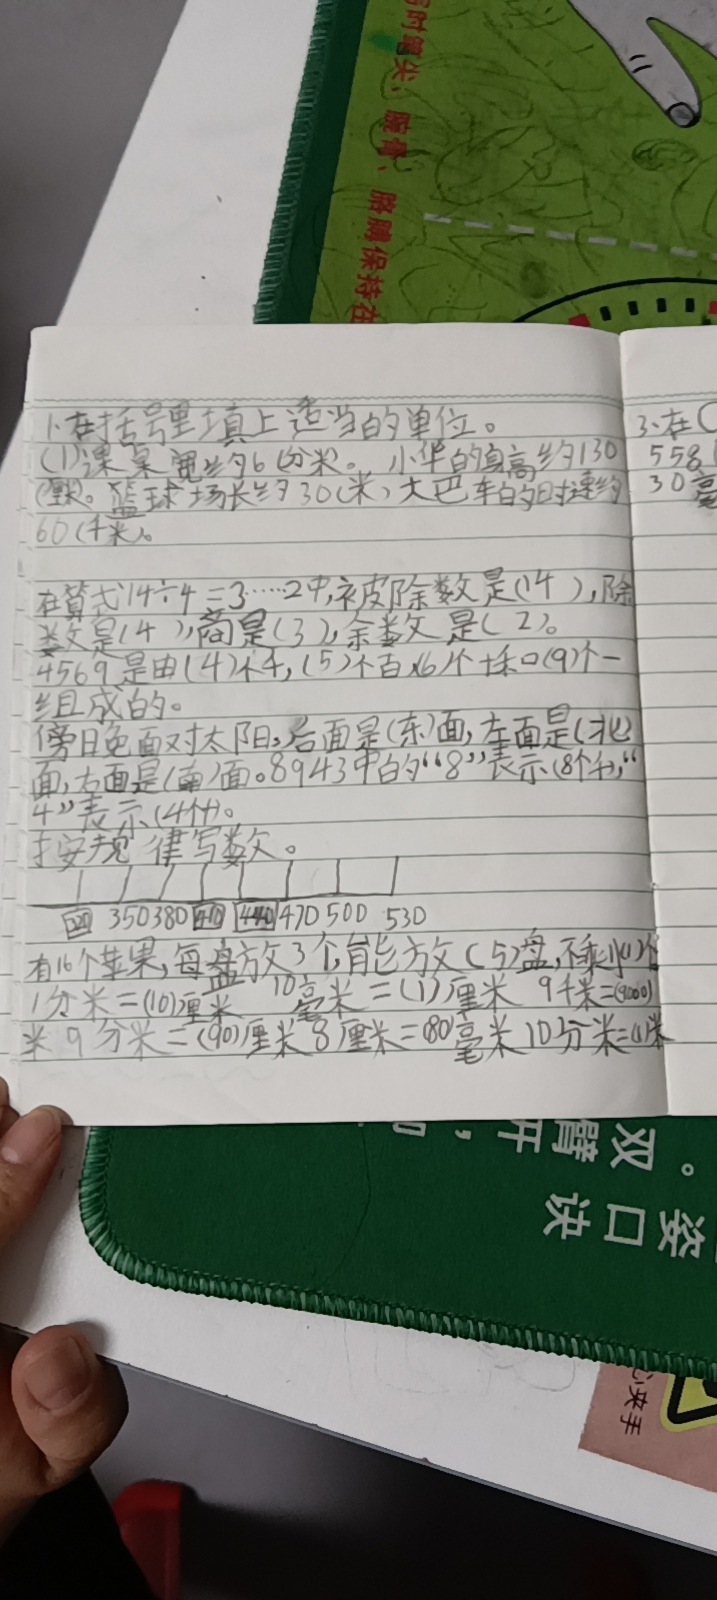 时笔尖、腕骨、胳膊保持在
1.在括号里填上适当的单位。
(1)课桌宽约6(分米)。小华的身高约130
(厘米)。篮球场长约30(米)大巴车的时速约
60(千米)。
在算式14÷4=3……2中,被除数是(14),除
数是(4),商是(3),余数是(2)。
4569是由(4)个千,(5)个百,(6)个十和(9)个一
组成的。
傍日免面对太阳,后面是(东)面,左面是(北)
面,右面是(南)面。8943中的“8”表示(8个千),“
4”表示(4个十)。
按规律写数。
350 380 410 440 470 500 530
有16个苹果,每盘放3个,能放(5)盘,还剩(1)个
1分米=(10)厘米 10毫米=(1)厘米 9千米=(9000)
米 9分米=(90)厘米 8厘米=(80)毫米 10分米=(1)米
3.在(
558(
30毫
双臂
姿口诀
心夹手